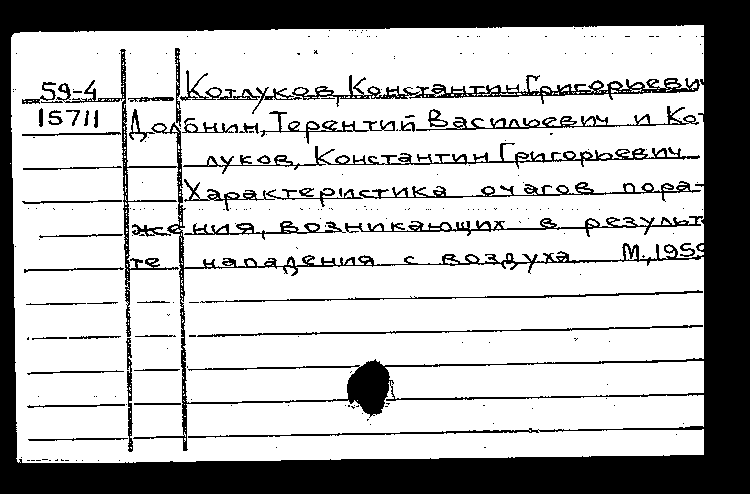 59-4 Котлуков, Константин Григорьевич
15711 Долбнин, Терентий Васильевич и Кот
луков, Константин Григорьевич
Характеристика очагов пора-
жения, возникающих в результ
те нападения с воздуха М., 1959